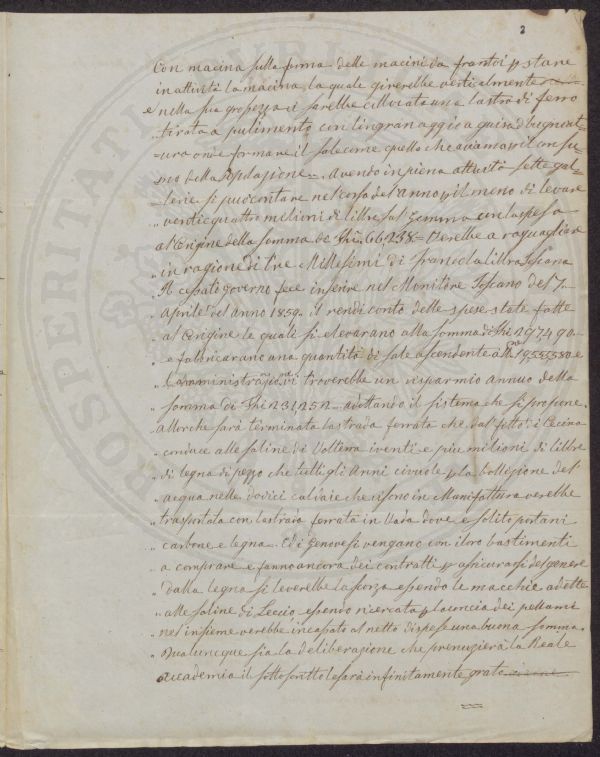 2
Con macina sulla forma delle macini da frantoi p stare
in attività la macina, la quale girerebbe verticalmente
e nella sua grossezza ci sarebbe collocata una lastra di ferro
tirata a pulimento con l'ingranaggio a guisa d
onde formare il sale come quello che abbiamo p il consu=
mo della Popolazione = Avendo in piena attività sette gal=
lerie si può contare nel corso del anno p il meno di levare
venti quattro milioni di libbre Sal Gemma con la spesa
al Origine della Somma di
in ragione di tre Millesimi di franco la libbra Toscana
Il cessato governo fece inserire nel Monitore Toscano del 7
Aprile del anno 1859 il rendi conto delle spese state fatte
al Origine le quali si elevarano alla Somma di 297,490
e fabbricarano una quantità di Sale ascendente a
L'amministrazione vi troverebbe un risparmio annuo della
Somma di 231252 adottando il sistema che si propone
allorche sarà terminata la strada ferrata che dal fitto di Cecina
conduce alle Saline di Volterra i venti e più milioni di libbre
di legna di pezzo che tutti gli Anni ci vuole p la bollizione del
acqua nelle dodici caldaie che ci sono in Manifattura verebbe
trasportata con la strada ferrata in Vada dove e solito portarsi
carbone e legna. Ed i Genovesi vengano con i loro bastimenti
a comprare e fanno ancora dei contratti p assicurarsi del genere
dalla legna si leverebbe la scorza essendo le macchie adette
alle Saline di Leccio, essendo ricercata p la concia dei pellami
nel insieme verebbe incassato al netto di spese una buona somma.
Qualunque sia la deliberazione che prenuzierà la Reale
Accademia il sotto scritto le sarà infinitamente grato